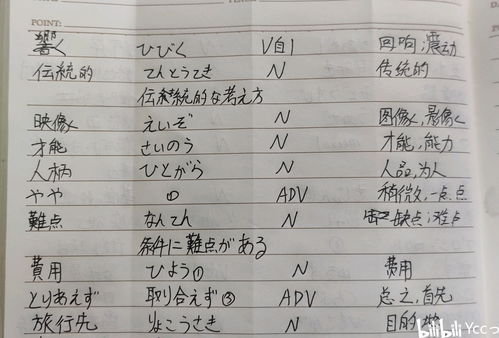 POINT:
響く ひびく V自1 回响;震动
伝統的 てんとうてき N 传统的
伝統的な考え方
映像 えいぞ N 图像,影像
才能 さいのう N 才能,能力
人柄 ひとがら N 人品,为人
やや ① ADV 稍微,一点点
難点 なんてん N 缺点;难点
条件に難点がある
費用 ひよう① N 费用
とりあえず 取り合えず③ ADV 总之,首先
旅行先 りょこうさき N 目的地
bilibili Yccっ